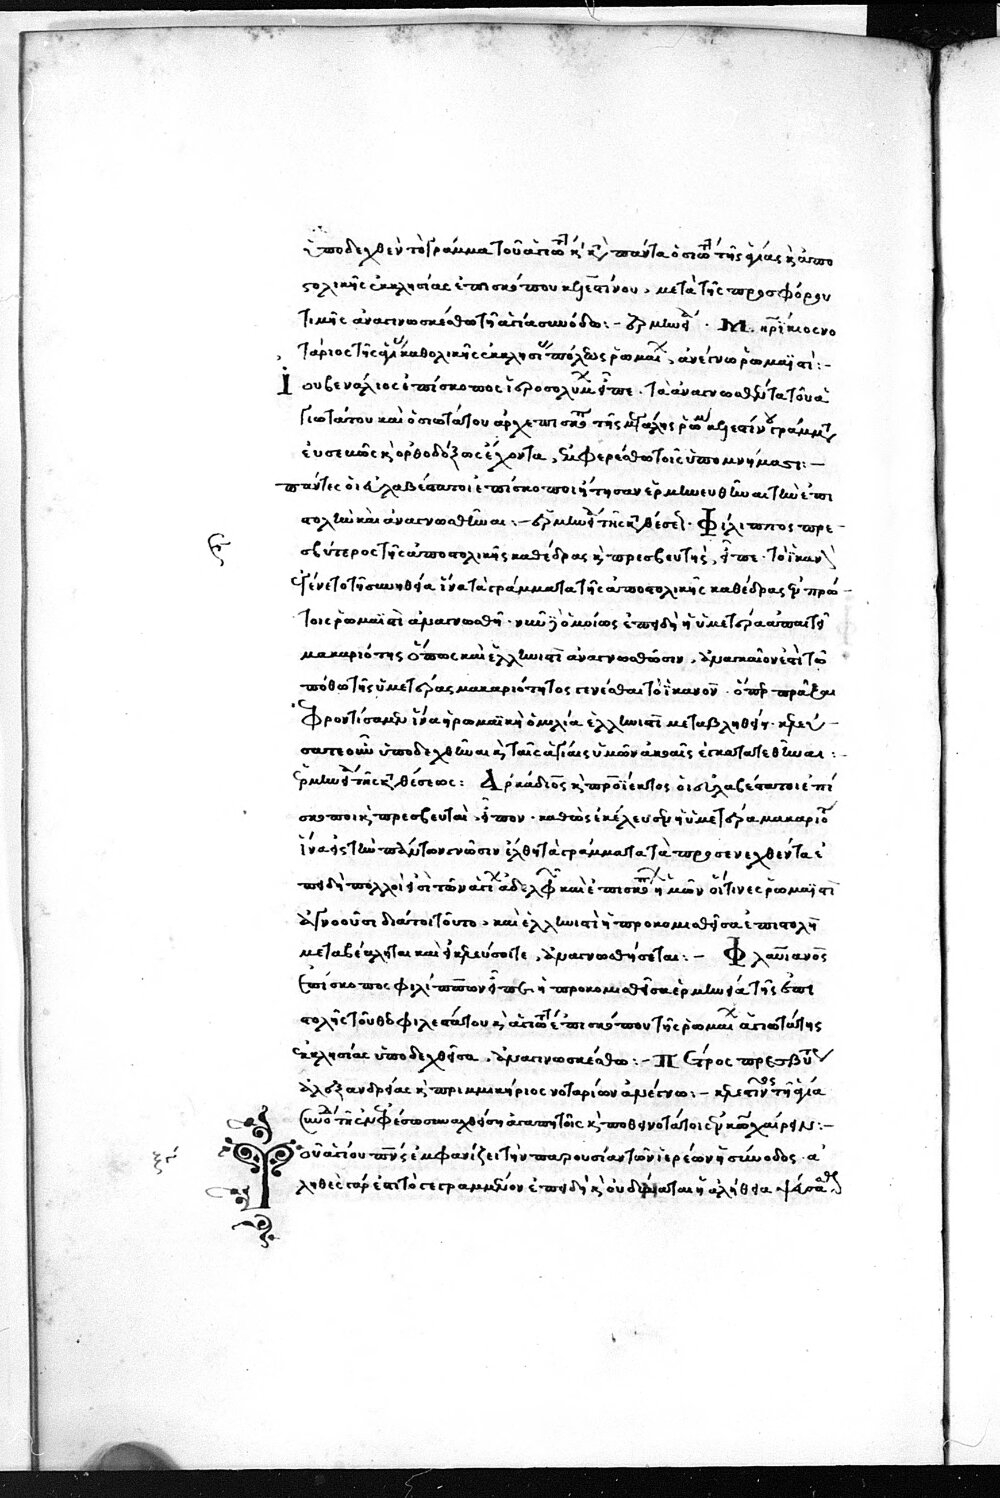 ὑποδεχθὲν τὸ γράμμα τοῦ ἁγιωτ κ κ πάντα ὁσιωτ τῆς ἁγίας κ ἀπο
στολικῆς ἐκκλησίας ἐπισκόπου κελεστίνου, μετὰ τῆς προσφόρου
τιμῆς ἀναγινωσκέσθω τῆ ἁγία συνόδω:- ἑρμην
τάριος τῆς καθολικῆς ἐκκλησι πόλεως ῥωμαι, ἀνέγνω ῥωμαϊστί:-
Ἰουβενάλιος ἐπίσκοπος ἱεροσολύμ εἶπε· τὰ ἀναγνωσθέντα τοῦ ἁ
γιωτάτου καὶ ὁσιωτάτου ἀρχιεπισκ τῆς μεγάλης ῥωμ κελεστίνου γράμματ
εὐσεβῶς κ ὀρθοδόξως ἔχοντα, ἐμφερέσθω τοῖς ὑπομνήμασι:-
πάντες οἱ εὐλαβέστατοι ἐπίσκοποι ἤτησαν ἑρμηνευθῆναι τὴν ἐπι
στολὴν καὶ ἀναγνωσθῆναι:- ἑρμην τῆς κ θέσε· Φίλιππος πρε
σβύτερος τῆς ἀποστολικῆς καθέδρας κ πρεσβευτὴς, εἶπε· τὸ ἱκανὸν
ἐγένετο τῆ συνηθεία ἵνα τὰ γράμματα τῆς ἀποστολικῆς καθέδρας ἐν πρώ
τοις ῥωμαϊστὶ ἀναγνωσθῆ· νῦν ὁμοίως ἐπειδὴ ἡ ὑμετέρα ἀπαιτεῖ
μακαριότης ὅπως καὶ ἑλληνιστὶ ἀναγνωσθῶσιν, ἀναγκαῖον ἐστὶ τῶ
πόθω τῆς ὑμετέρας μακαριότητος γενέσθαι τὸ ἱκανὸν· ὅπερ πρᾶξαι
ἐφροντίσαμεν ἵνα ἡ ῥωμαϊκὴ ὁμιλία ἑλληνιστὶ μεταβληθείη· κελεύ
σατε οὖν ὑποδεχθῆναι κ ταῖς ἁγίαις ὑμῶν ἀκοαῖς ἐγκατατεθῆναι:
ἑρμην τῆς κ θέσεως: Ἀρκάδιος κ προϊεκτος οἱ εὐλαβέστατοι ἐπί
σκοποι κ πρεσβευταὶ, εἶπον· καθὼς ἐκέλευσεν ἡ ὑμετέρα μακαριότ
ἵνα εἰς τὴν πάντων γνῶσιν ἔλθη τὰ γράμματα τὰ προσενεχθέντα ἐ
πειδὴ πολλοὶ εἰσὶ τῶν ἁγι ἀδελφ καὶ ἐπισκ ἡμῶν οἵτινες ῥωμαϊστὶ
ἀγνοοῦσι διάτοι τοῦτο, καὶ ἑλληνιστὶ ἡ προκομισθεῖσα ἐπιστολὴ
μεταβέβληται καὶ εἰ κελεύσοιτε, ἀναγνωσθήσεται:- Φλαυϊανὸς
ἐπίσκοπος φιλίππων εἶπεν· ἡ προκομισθεῖσα ἑρμηνεία τῆς ἐπι
στολῆς τοῦ θεοφιλεστάτου κ ἁγιωτ ἐπισκόπου τῆς ῥωμαι ἁγιωτάτης
ἐκκλησίας ὑποδεχθεῖσα, ἀναγινωσκέσθω:- Πέτρος πρεσβύτ
ἀλεξανδρείας κ πριμμικήριος νοταρίων ἀνέγνω:- κελεστῖνος τῆ ἁγία
συνόδ τῆ ἐν ἐφέσω συναχθείση ἀγαπητοῖς κ ποθεινοτάτοις ἐν κω χαίρειν:-
Τοῦ ἁγίου πνς ἐμφανίζει τὴν παρουσίαν τῶν ἱερέων ἡ σύνοδος· ἀ
ληθὲς γάρ ἐστι τὸ γεγραμμένον ἐπειδὴ κ οὐ δύναται ἡ ἀλήθεια ψεύσασθ